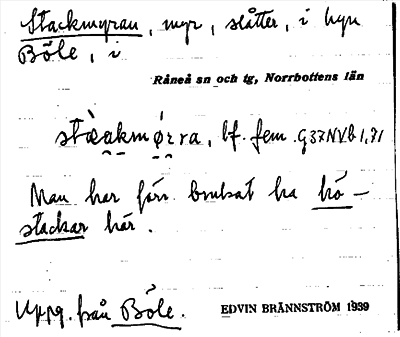 Stackmyran, myr, slåtter, i byn
Böle, i
Råneå sn och tg, Norrbottens län
bf. fem. G37NVb1,71
Man har förr brukat ha hö-
stackar här.
Uppg. från Böle.
EDVIN BRÄNNSTRÖM 1939